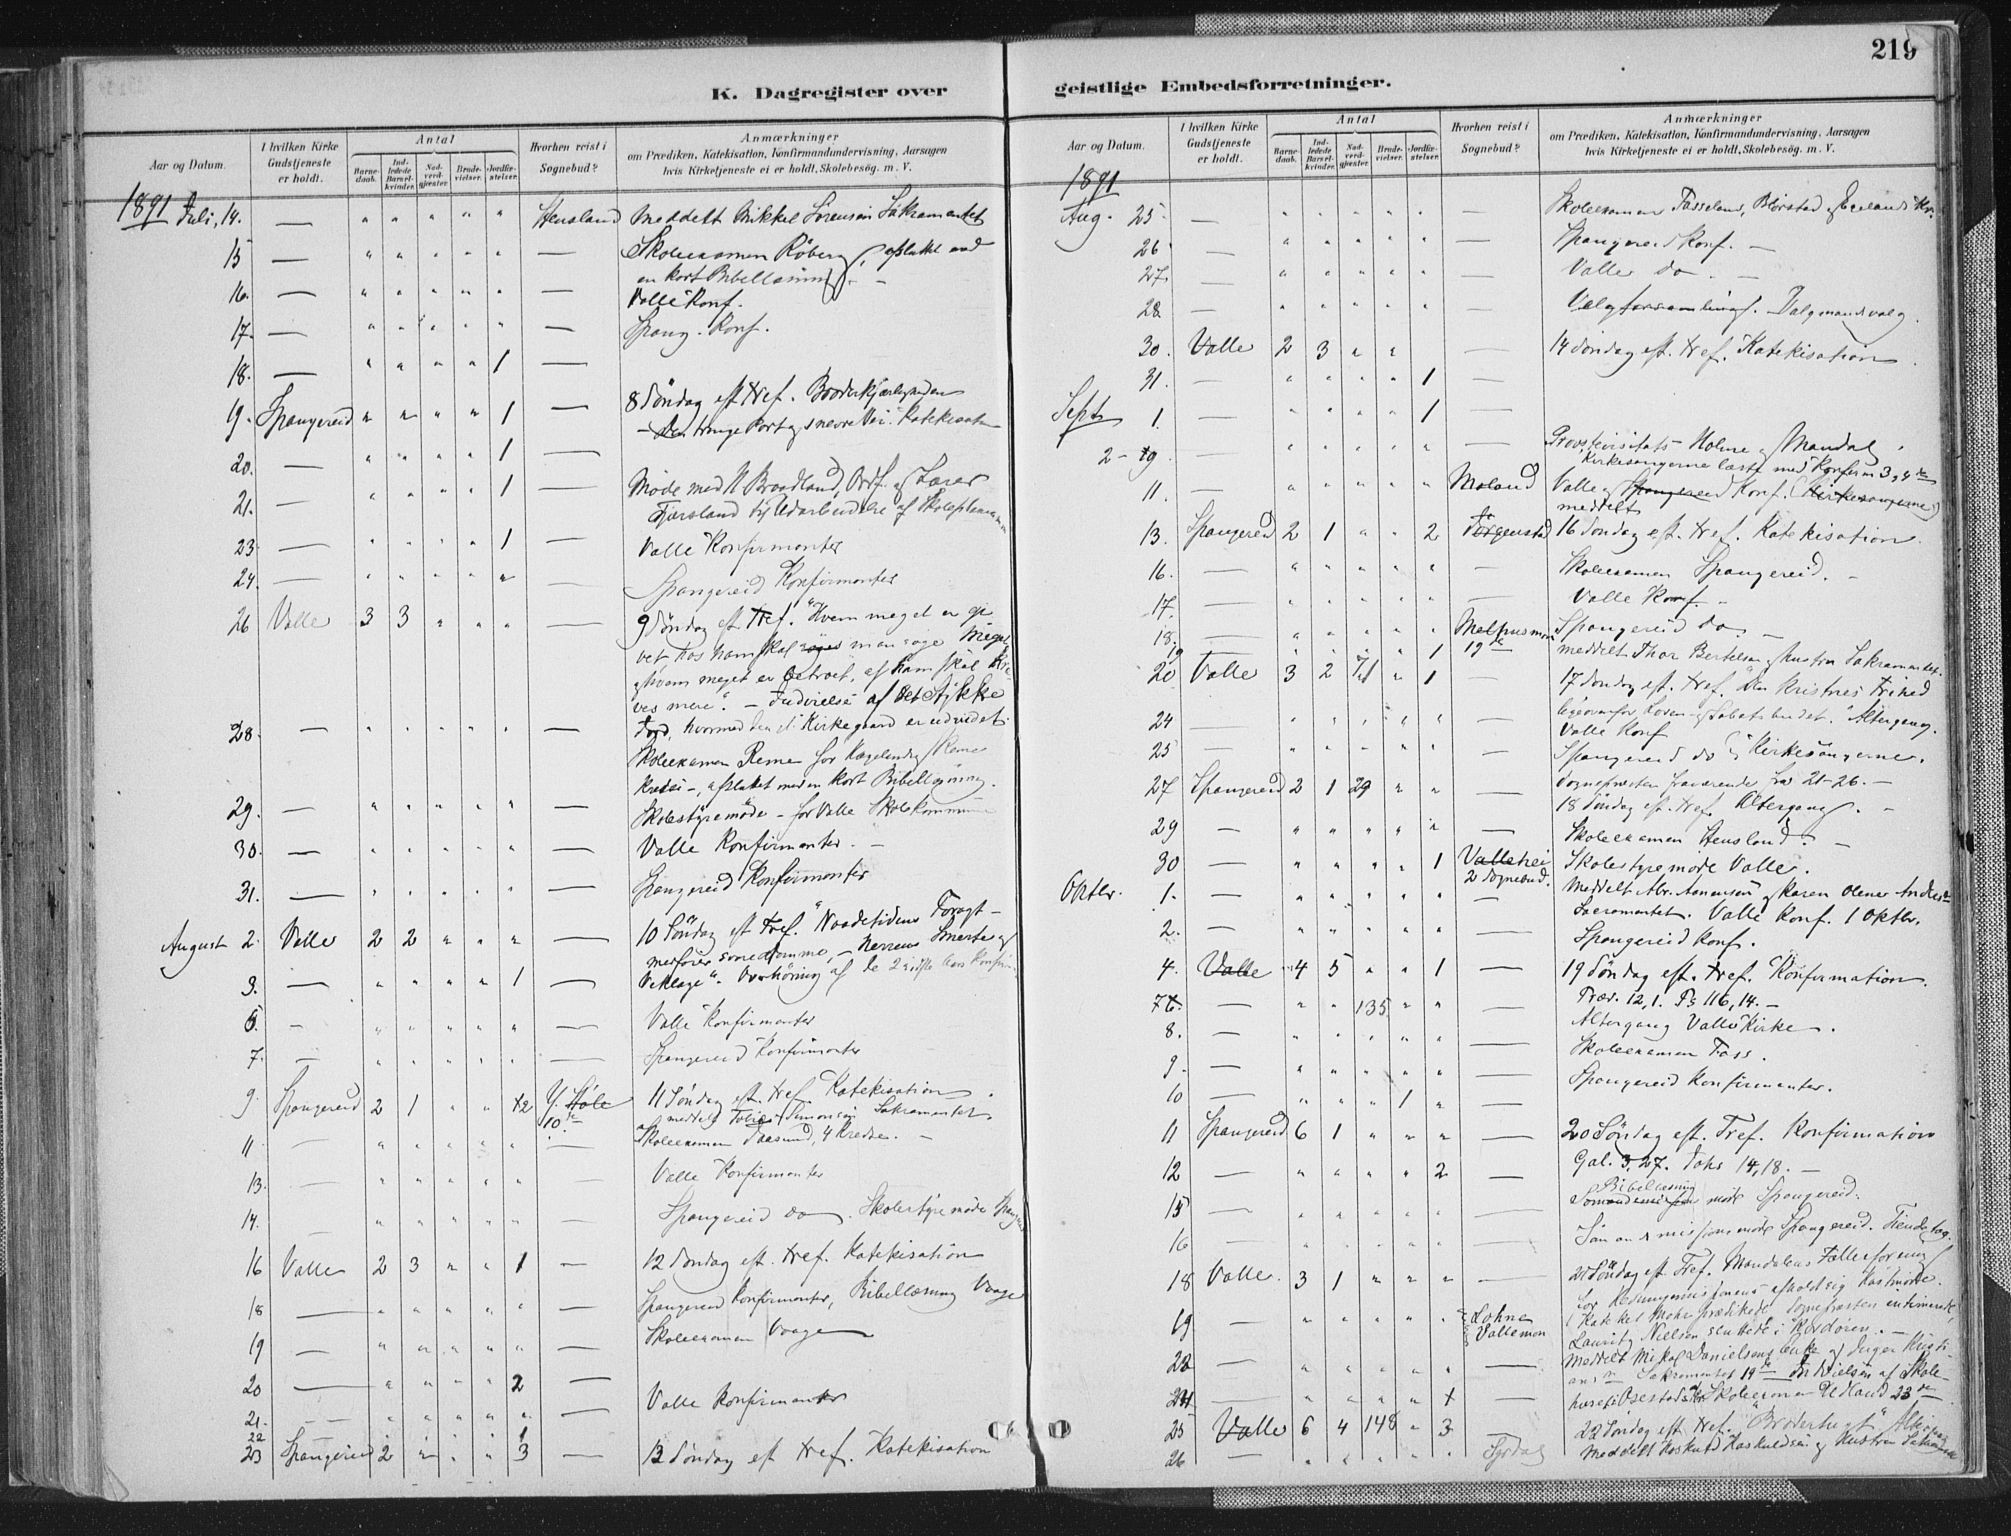 219
K. Dagregister over geistlige Embedsforretninger.
Aar og Datum.
I hvilken Kirke Gudstjeneste er holdt.
Antal
Barnedaab.
Indledede Barselkvinder.
Nadverdgjæster.
Brudevielser.
Jordfæstelser.
Hvorhen reist i Sognebud?
Anmærkninger
om Prædiken, Katekisation, Konfirmandundervisning, Aarsagen
hvis Kirketjeneste ei er holdt, Skolebesøg. m. V.
1891 Juli, 14. — " " " " " Hensland Meddelt Mikkel Sørensen Sakramentet
15 — " " " " " — Skoleexamen Röberg, afsluttet med
en kort Bibellæsning. —
16. — " " " " " — Valle Konf.
17. — " " " " " — Spang. Konf.
18. — " " " " 1
19. Spangereid " " " " 1 — 8 Söndag eft Tref. Broderkjærligheden
— Den trange Port og snevre Vei. Katekisation
20. — " " " " 1
21. — " " " " 1 — Møde med N Braadland, Ordf. og Lærer
Fjærsland til Udarbeidelse af Skoleplanen
23. — " " " " 1 — Valle Konfirmanter
24. — " " " " " — Spangereid Konfirmanter
26 Valle 3 3 " " " — 9 Söndag eft Tref. "Hvem meget er gi
vet, hos ham skal man søge meget
og hvem meget er betroet, af ham skal kræ
ves mere". — Indvielse af det Stykke
Jord, hvormed den Kirkegaard er udvidet.
28. — " " " " " — Skoleexamen Reme for Hægeland og Reme
Kredse —, afsluttet med en kort Bibellæsning.
29. — " " " " " — Skolestyremøde — for Valle Skolekommune
30. — " " " " " — Valle Konfirmanter. —
31. — " " " " " — Spangereid Konfirmanter
August 2. Valle 2 2 " " " — 10 Söndag eft Tref. "Naadetidens Foragt —
medfører sine Domme, — Herrens Smerte og
Veklage". Overhöring af de 2 sidste Aars Konfirm.
3. — " " " " 1 —
6. — " " " " " — Valle Konfirmanter
7. — " " " " " — Spangereid Konfirmanter
9. Spangereid 2 1 " " 2 Y. Støle 10de 11 Söndag eft. Tref. Katekisation.
meddelt Tobias Simonsen Sakramentet.
11 — " " " " " Skoleexamen Faasund, 4 Kredse. —
13. — " " " " " Valle Konfirmanter
14. — " " " " " — Spangereid do. Skolestyremöde Spang
16 Valle 2 3 " " 1 — 12 Söndag eft. Tref. Katekisation
18 — " " " " " — Spangereid Konfirmanter, Bibellæsning Vaage
19 — " " " " " — Skoleexamen Vaage
20 — " " " " 2 —
21. — " " " " " — Valle Konfirmanter
22 " " " " 1
23 Spangereid 2 " " " 3 — 13 Söndag eft Tref. Katekisation
Aar og Datum.
I hvilken Kirke Gudstjeneste er holdt.
Antal
Barnedaab.
Indledede Barselkvinder.
Nadverdgjæster.
Brudevielser.
Jordfæstelser.
Hvorhen reist i Sognebud?
Anmærkninger
om Prædiken, Katekisation, Konfirmandundervisning, Aarsagen
hvis Kirketjeneste ei er holdt, Skolebesög. m. V.
1891
Aug. 25 — " " " " " — Skoleexamen Fasseland, Blörstad og Egeland Kr.
26 — " " " " " — Spangereid Konf. —
27. — " " " " " — Valle do. —
28 — " " " " " — Valgforsamlingf. Valgmandsvalg.
30. Valle 2 3 " " — 14 Söndag eft. Tref. Katekisation
31. — " " " " 1 —
Septr 1. — " " " " 1 —
2-9 — " " " " " — Provstevisitats Holme og Mandal.
Kirkesangerne læste med Konfirm 3, 4de
11. — " " " " " Moland Valle og Spangereid Konf. (Kirkesangerne)
meddelt
13. Spangereid 2 1 " " 2 Jørgenstad 16 Söndag eft. Tref. Katekisation.
16. — " " " " " — Skoleexamen Spangereid. —
17. — " " " " " Valle Konf. —
18. — " " " " " Spangereid do. —
19 " " " " 1 19de meddelt Thor Bertelsen og Hustru Sakramentet.
20 Valle 3 2 71 " 1 — 17 Söndag eft. Tref. Den Kristnes Frihed
Sabatsbudet. Altergang.
24 — " " " " " — Valle Konf
25 — " " " " " — Spangereid do Kirkesangerne.
Sognepresten fraværende fra 21-26. —
27 Spangereid 2 1 29 " " — 18 Söndag eft. Tref. Altergang. —
29 — " " " " " — Skoleexamen Hensland. —
30 — " " " " 1 Vallehei Skolestyremöde Valle.
2 Sognebud.
Oktbr. 1. — " " " " " — Meddelt Abr. Aanensen og Karen Olene Anders
Sacramentet. Valle Konf. 1 Oktbr.
2. — " " " " " — Spangereid Konf.
4. Valle 4 5 " " 1 — 19 Söndag eft. Tref. Konfirmation.
Præd. 12,1. Ps 116,14. —
7. — " " 135 " " — Altergang Valle Kirke.
8. — " " " " " — Skoleexamen Foss.
9. — " " " " " Spangereid Konfirmanter.
10 — " " " 1 " —
11 Spangereid 6 1 " " " — 20 Söndag eft. Tref. Konfirmation
Gal. 3,27. Johs 14,18. —
12 — " " " " 2 — Bibellæsning
15 — " " " " " möde Spangereid.
16 — " " " " " Sömandsmissionsmöde Spangereid. Tiendetag.
18 Valle. 3 1 " " " — 21 Söndag eft. Tref. Mandalens Fællesforening
for Hedningemissionens afholdt sig Höstmöde.
Kateket Mohr prædikede, Sognepresten intimerede,
19 — " " " " " Lohne Vallemon Lauritz Nielsen sluttede i Kordören. —
Meddelt Mikal Danielsens Enke og Inger Kristi-
22 — " " " " " — ansn Sakramentet 19de Indvielsen af Skole-
24 — " " " " 1 — huset Osestad Skoleexamen Udland 23de
25 Valle 6 4 148 " 3 — 22 Söndag eft. Tref. "Broderlighed" Altergang
26 — " " " " " Syrdal Meddelt Haskuld Haskuldsen og Hustru Sakramente